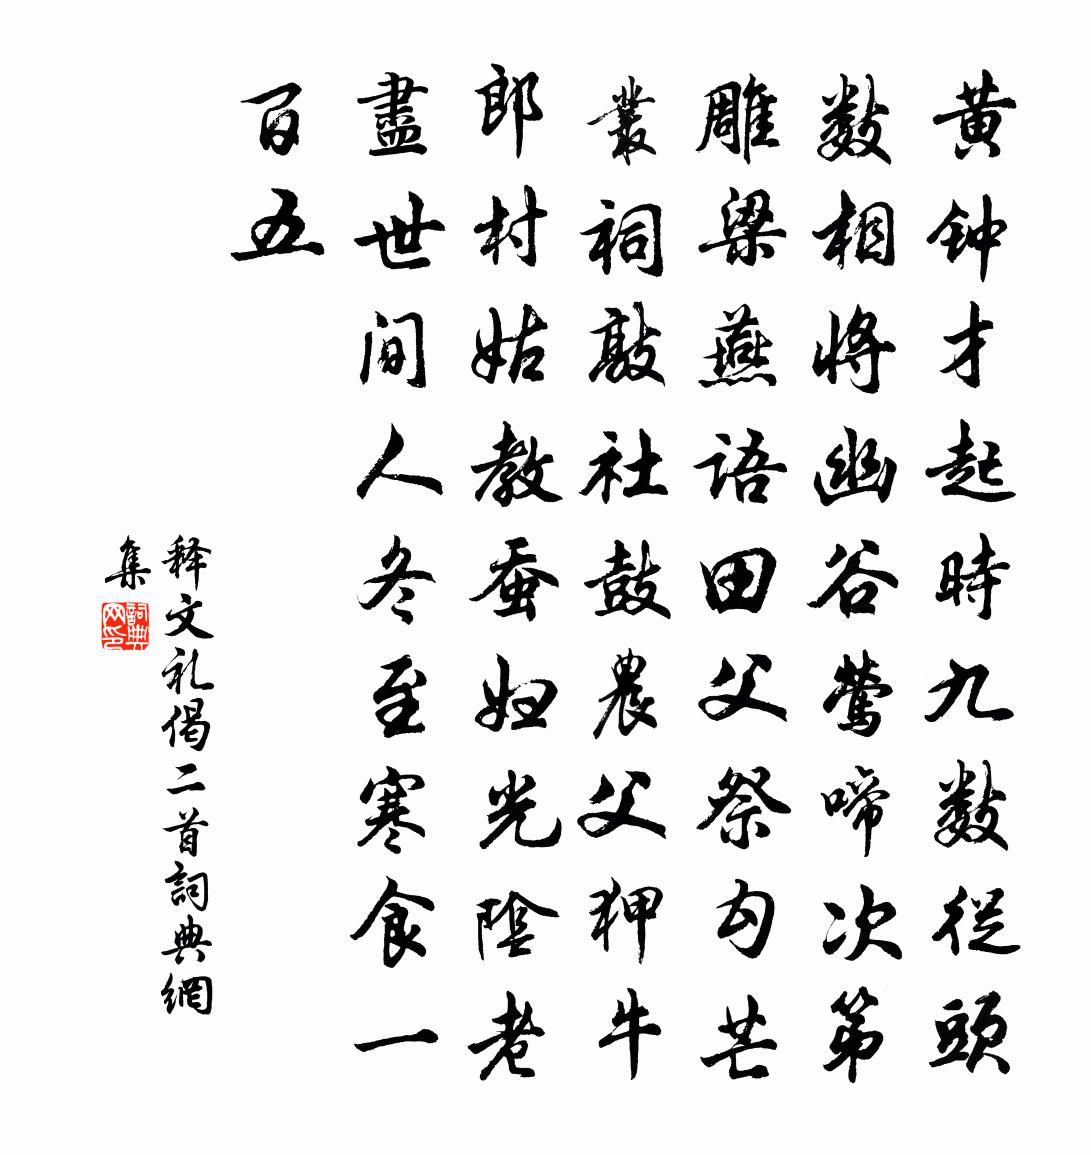 黄钟才起時九數從頭
數相將幽谷鶯啼次第
雕梁燕語田父祭勾芒
叢祠敲社鼓農父狎牛
郎村姑教蚕妇光陰老
盡世间人冬至寒食一
百五
释文礼偈二首詞典網
集
詞典
网印